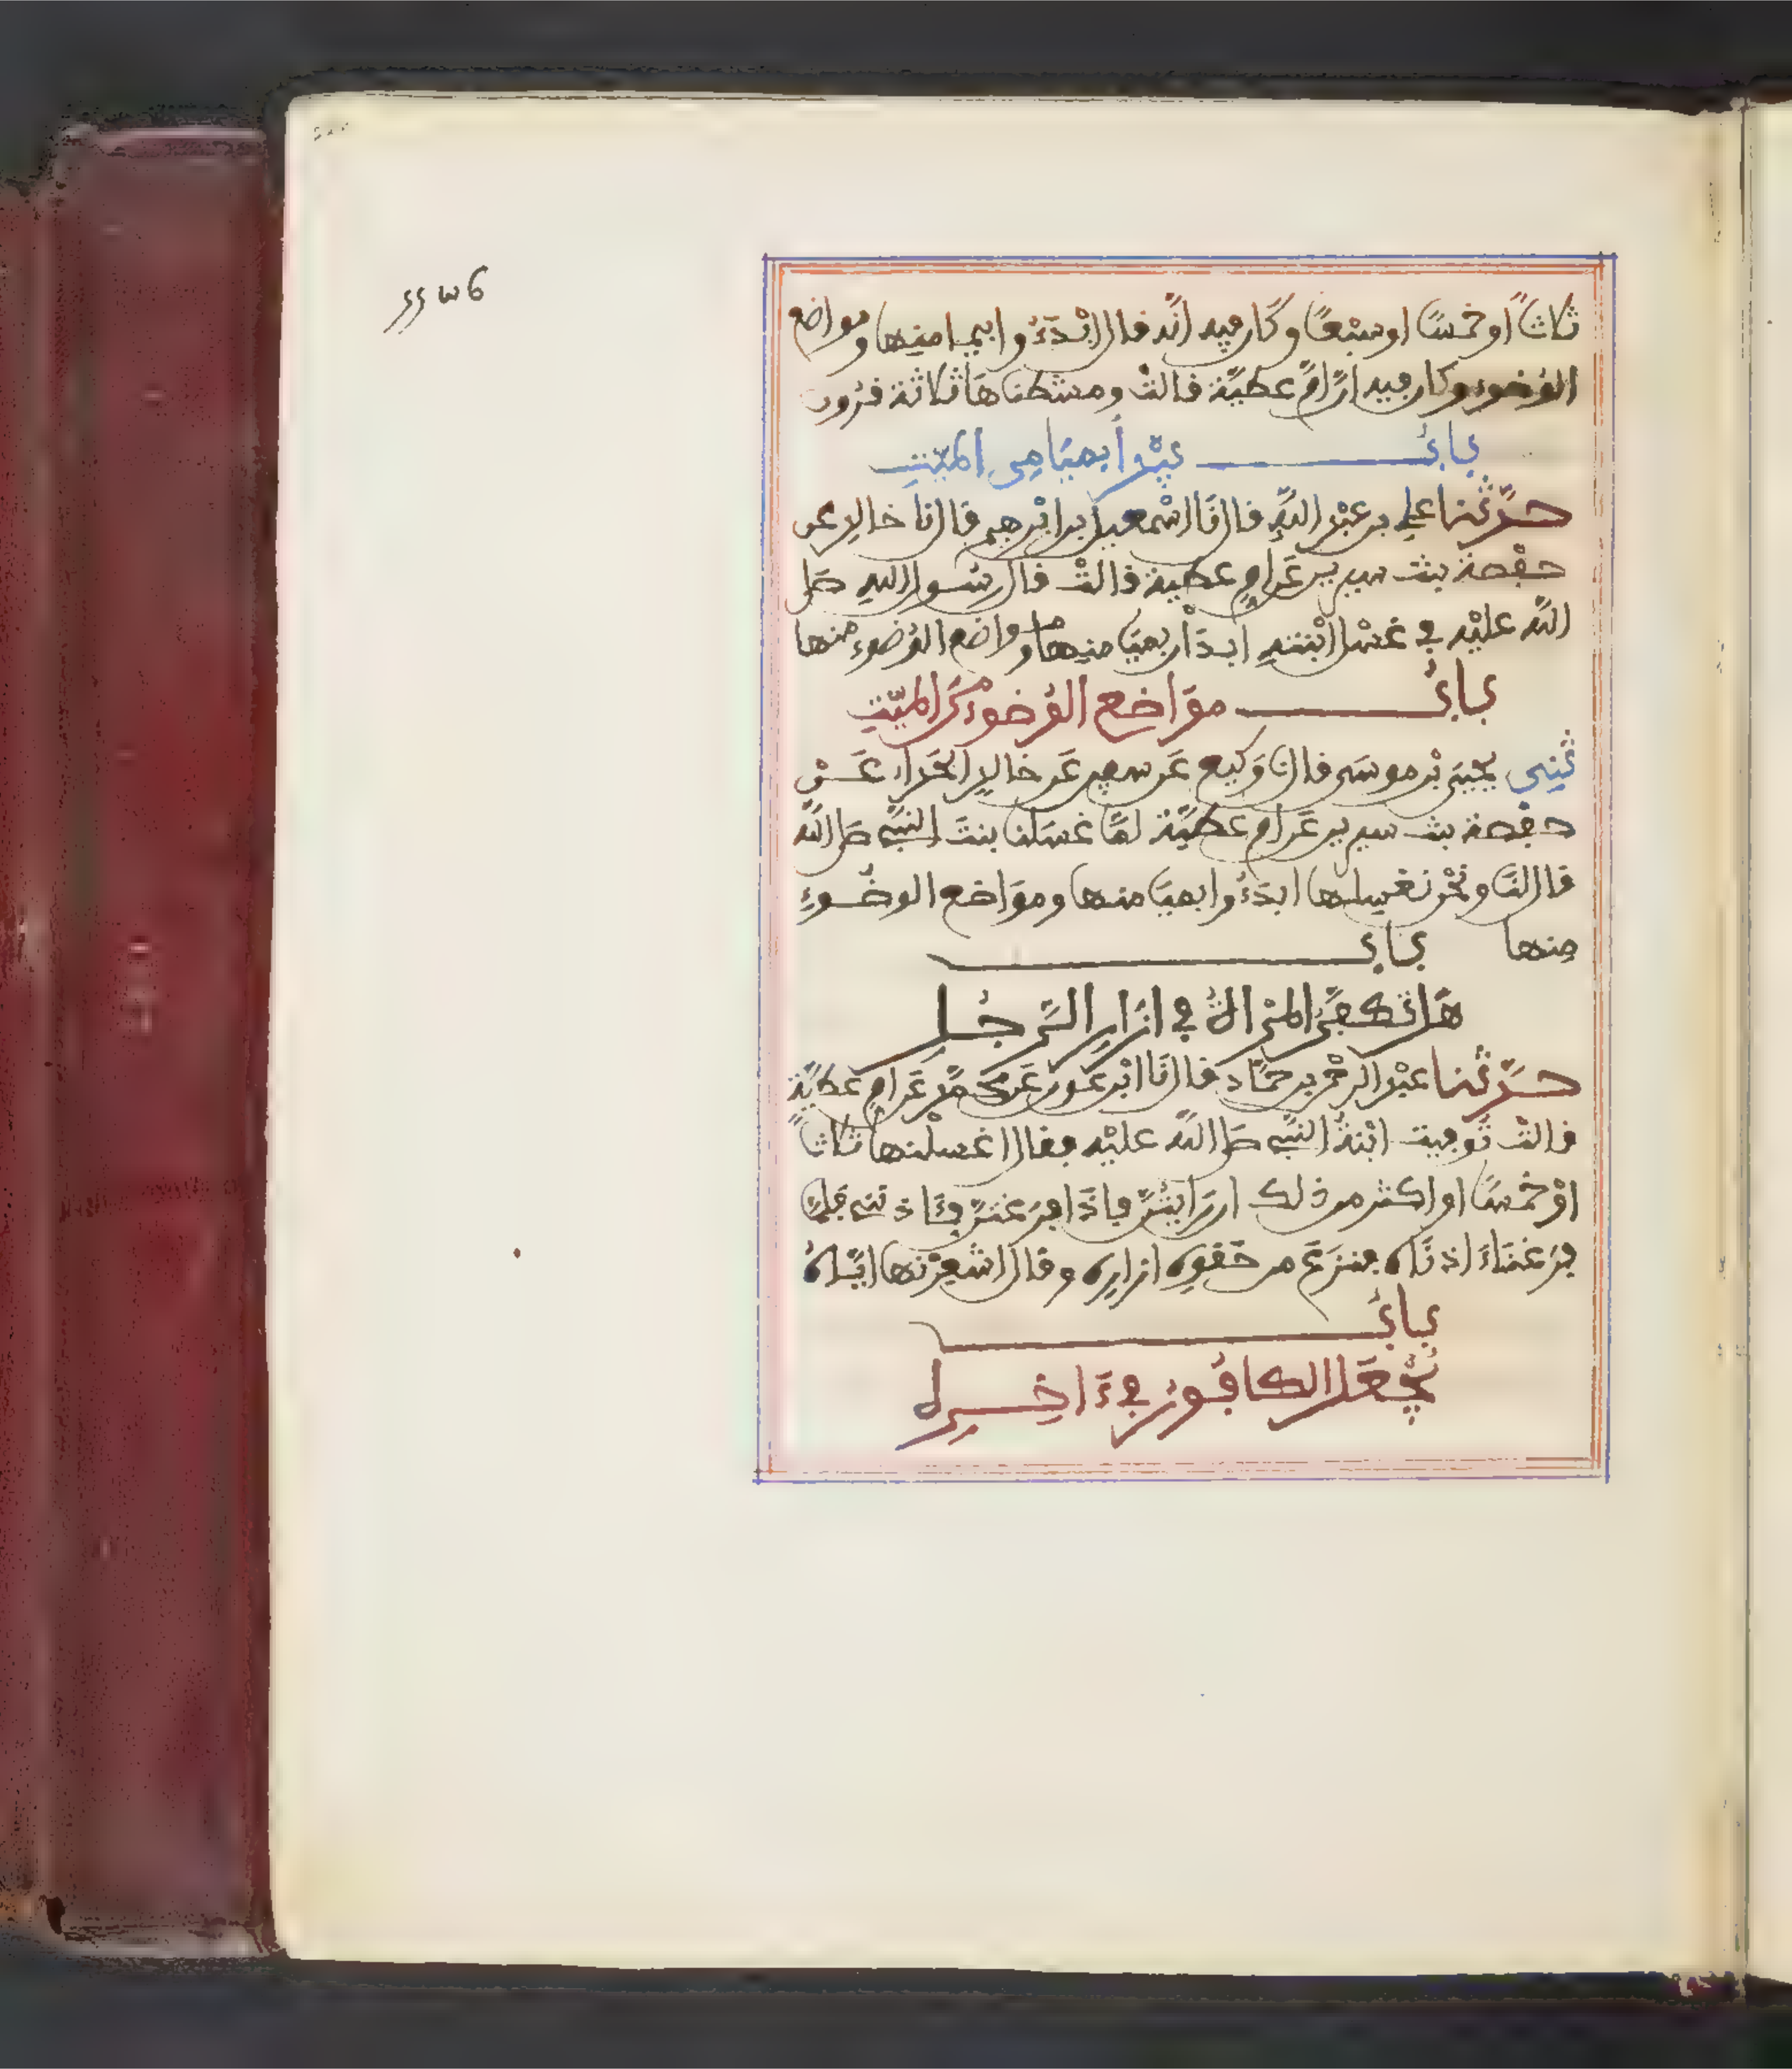 ثلاثاً أو خمسًا أو سبعًا وكان فيه أنّه قال ابْدَءُوا بميامنها ومواضع
الوُضوء وكان فيه أنّ أمّ عطيّة قالت ومشطناها ثلاثة قرون
بابُ يبْدأ بميَامِنِ الميّتِ
حدّثنا علي بن عبْد اللهِ قال نَا اسْمعيل بن ابْرهيم قال نا خالد عن
حفْصة بنت سيرين عَن امِّ عطية قالتْ قال رسُول اللهِ صلى
اللّه عليْه في غسْل ابْنته ابدَأن بميَامنها ومواضع الوُضوء منها
بابُ مَوَاضع الوُضوء من الميّتِ
ثنِي يحْيَى بْن موسَى قال نا وَكيع عَن سفين عَن خالدٍ الحَذاء عَنْ
حفصة بنت سيرين عَن ام عطيّة لمّا غسَلنا بنتَ النبي صلى الله
قال لنَا ونحْن نغسِلها ابدَءُوا بميَامنها ومَوَاضع الوضُوءِ
مِنها باب
هَل تكفّنُ المرْأةُ في ازَارِ الرّجُلِ
حدّثنا عبْد الرحْمن بن حمّاد قال نَا ابْن عَون عَن محمّد عَن امِّ عطيّةٍ
قالتْ تُوفيت ابْنةُ النبي صلى الله عليْه فقال اغسلْنها ثلاثا
اوْ خمْسًا او اكثر من ذلك ان رَايْتُنّ فإذَا فرَغتنّ فئَاذنّني فلمّا
فرَغنَاءَ اذنّاه فنزَعَ من حَقوِه ازارِه وقال اشعِرْنها ايّاه
بابُ
يُجْعَل الكافُورُ في ءَاخِرِه